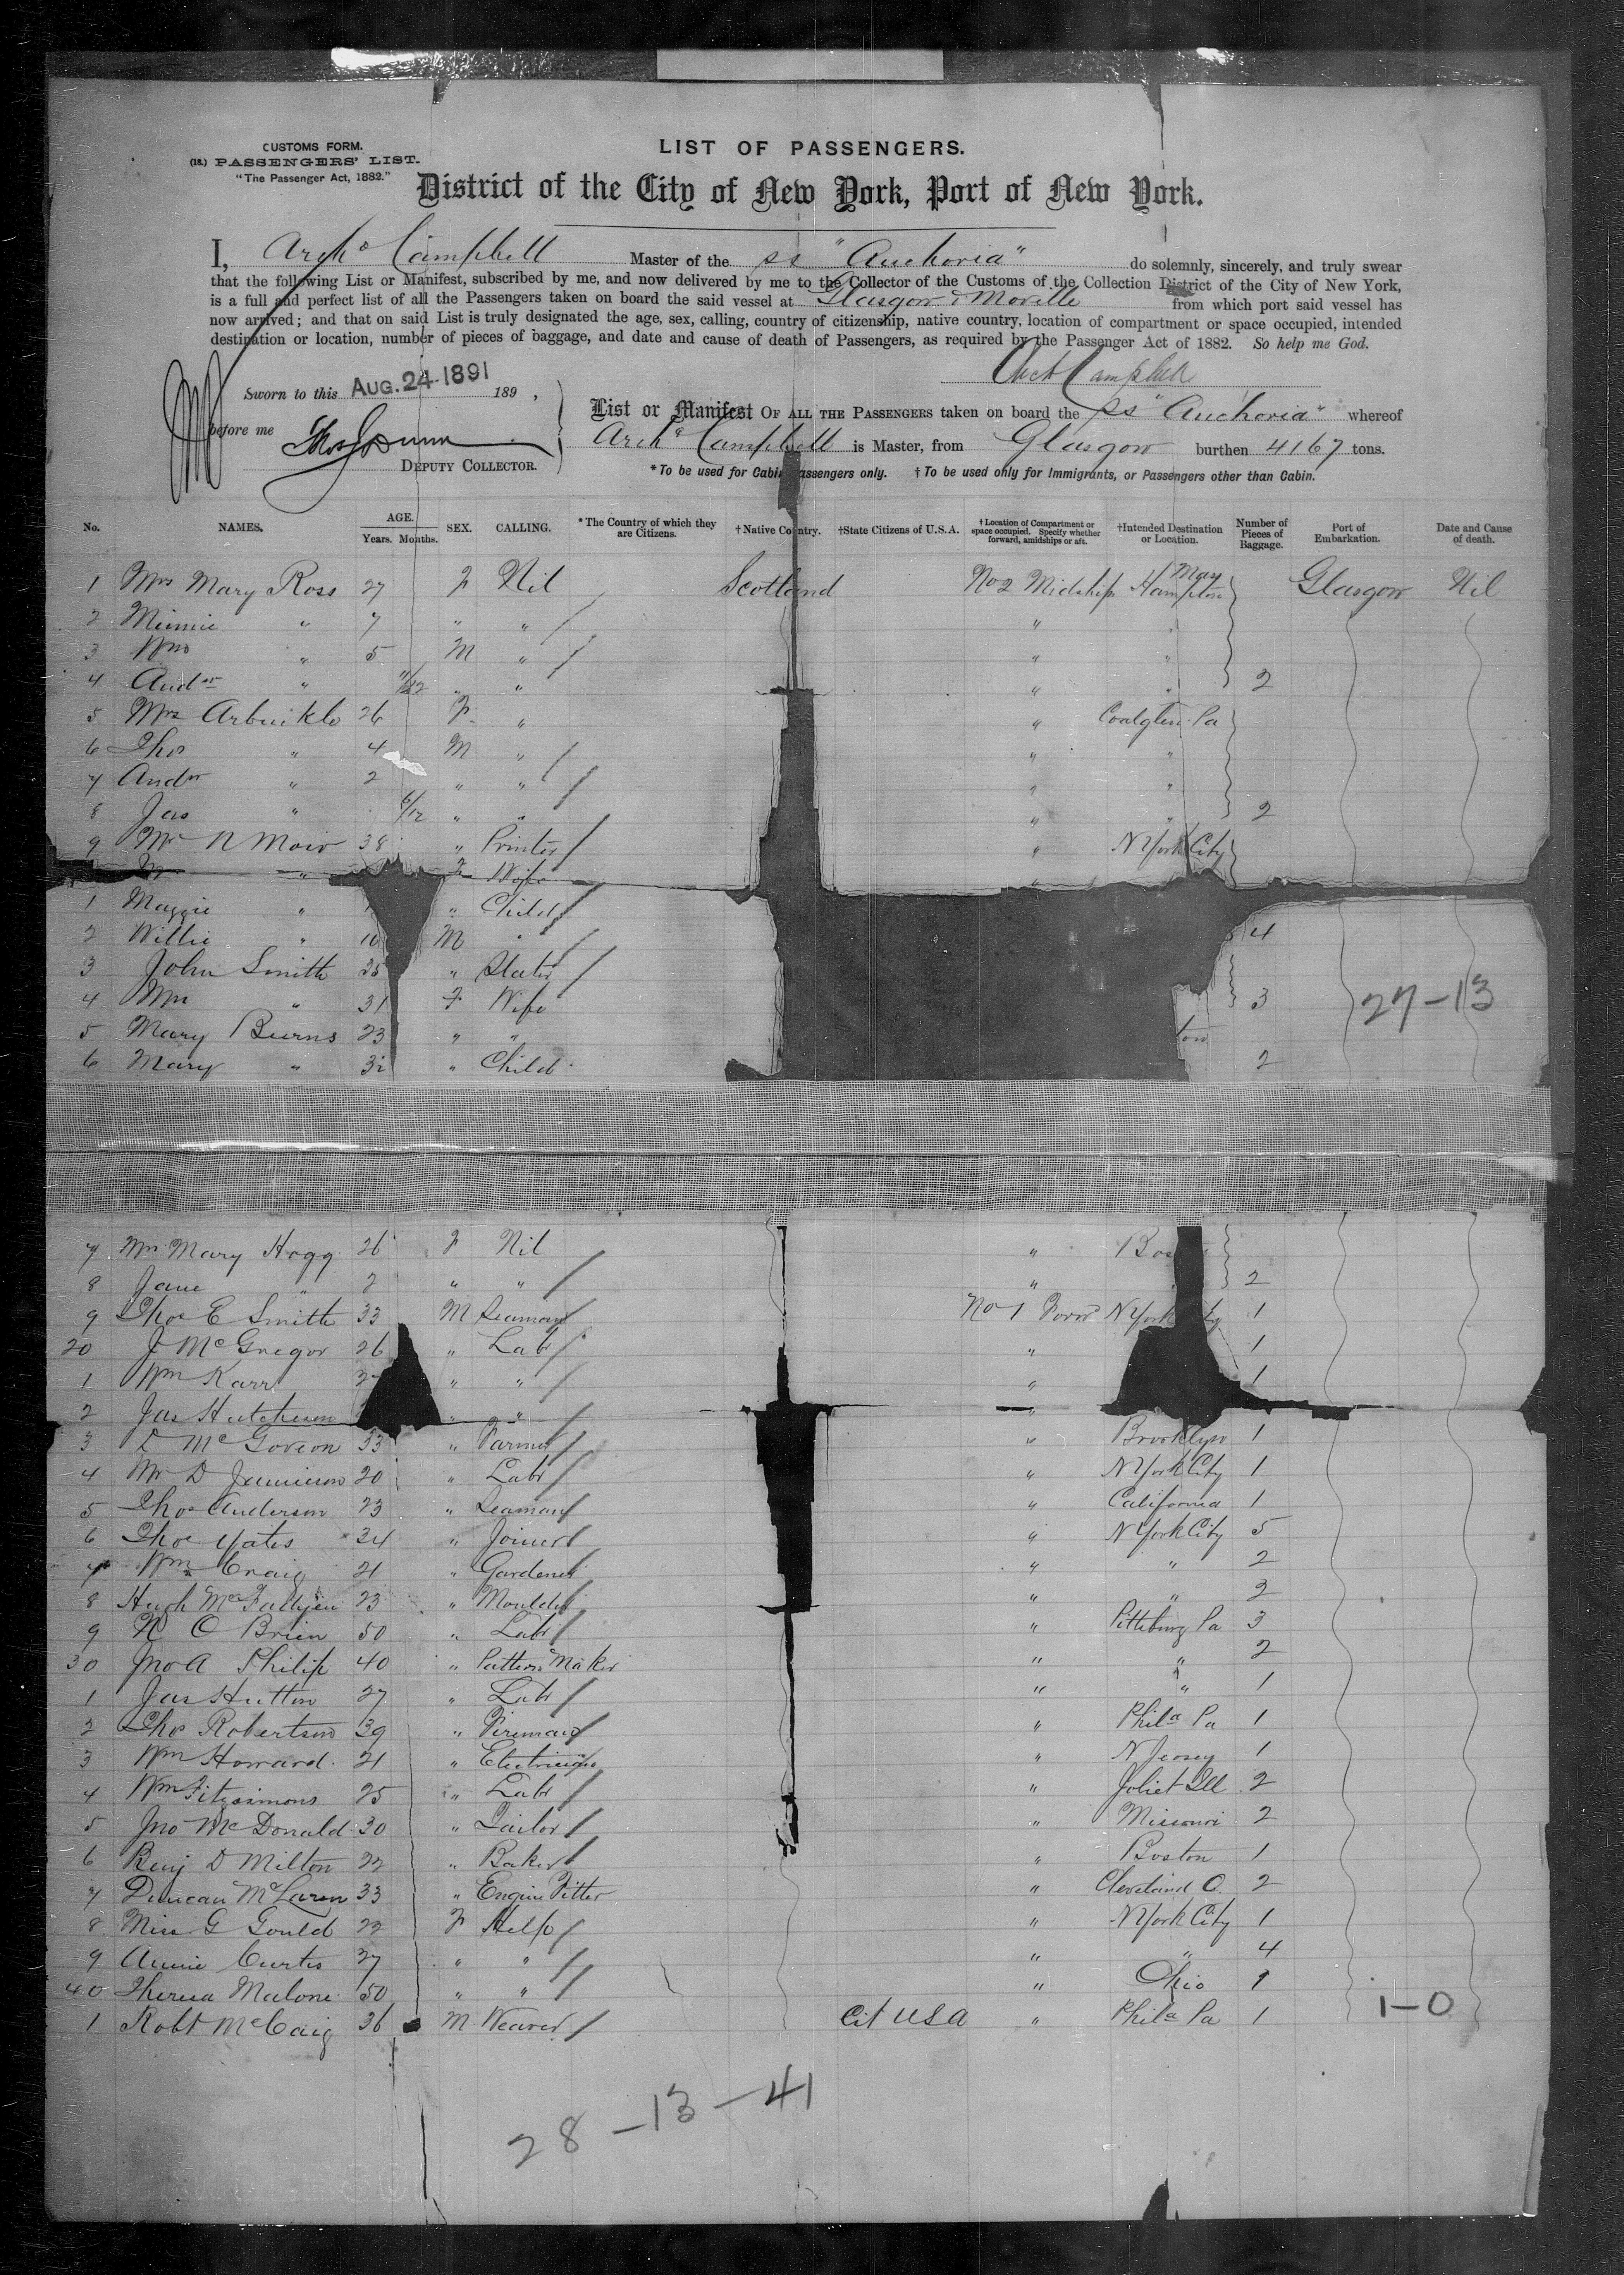 LIST OF PASSENGERS.
CUSTOMS FORM.
(18.) PASSENGERS' LIST.
"The Passenger Act, 1882."
District of the City of New York, Port of New York.
I, Archd Campbell Master of the ss "Anchoria" do solemnly, sincerely, and truly swear
that the following List or Manifest, subscribed by me, and now delivered by me to the Collector of the Customs of the Collection District of the City of New York,
is a full and perfect list of all the Passengers taken on board the said vessel at Glasgow & Moville from which port said vessel has
now arrived; and that on said List is truly designated the age, sex, calling, country of citizenship, native country, location of compartment or space occupied, intended
destination or location, number of pieces of baggage, and date and cause of death of Passengers, as required by the Passenger Act of 1882. So help me God.
Arch Campbell
Sworn to this AUG. 24 1891 189 ,
before me
DEPUTY COLLECTOR.
List or Manifest OF ALL THE PASSENGERS taken on board the ss "Anchoria" whereof
Archd Campbell is Master, from Glasgow burthen 4167 tons.
*To be used for Cabin Passengers only. †To be used only for Immigrants, or Passengers other than Cabin.
No. NAMES. AGE. Years. Months. SEX. CALLING. *The Country of which they are Citizens. †Native Country. †State Citizens of U.S.A. †Location of Compartment or space occupied. Specify whether forward, amidships or aft. †Intended Destination or Location. Number of Pieces of Baggage. Port of Embarkation. Date and Cause of death.
1 Mrs Mary Ross 27 F Nil Scotland No 2 Midship Hampton Glasgow Nil
2 Minnie " 7 " " " "
3 Wm " 5 M " " "
4 Andw " 11/12 " " " " 2
5 Mrs Arbuckle 26 F " " Coalglen Pa
6 Thos " 4 M " " "
7 Andw " 2 " " " "
8 Jas " 6/12 " " " " 2
9 Mr N Moir 38 " Printer " N York City
" F Wife "
1 Maggie " " Child
2 Willie " 10 M " 4
3 John Smith 35 " Slater
4 Mrs " 31 F Wife 3
5 Mary Burns 23 " "
6 Mary " " Child 2
27-13
7 Mrs Mary Hogg 26 F Nil " Bos
8 Jane " 2 " " " 2
9 Thos E Smith 33 M Seaman No 1 Forwd N York City 1
20 J McGregor 26 " Labr " 1
1 Wm Karr " " " 1
2 Jas Hutcheson " " "
3 D McGoveon 33 " Farmer " Brooklyn 1
4 Mr D Jamieson 20 " Labr " N York City 1
5 Thos Anderson 23 " Seaman " California 1
6 Thos Yates 34 " Joiner " N York City 5
7 Wm Craig 21 " Gardener " " 2
8 Hugh 23 " Moulder " " 2
9 N O Brien 50 " Labr " Pittsburg Pa 3
30 Jno A Philip 40 " Pattern Maker " " 2
1 Jas Hutton 27 " Labr " " 1
2 Thos Robertson 39 " Fireman " Phila Pa 1
3 Wm Howard 21 " Electrician " N Jersey 1
4 Wm Fitzsimons 25 " Labr " Joliet Ill 2
5 Jno McDonald 30 " Tailor " Missouri 2
6 Benj D Milton 22 " Baker " Boston 1
7 Duncan McLaren 33 " Engine Fitter " Cleveland O. 2
8 Miss G Gould 22 F Help " N York City 1
9 Annie Curtis 27 " " " " 4
40 Theresa Malone 50 " " " Ohio 1
1 Robt McCaig 36 M Weaver Cit USA " Phila Pa 1
1-0
28-13-41